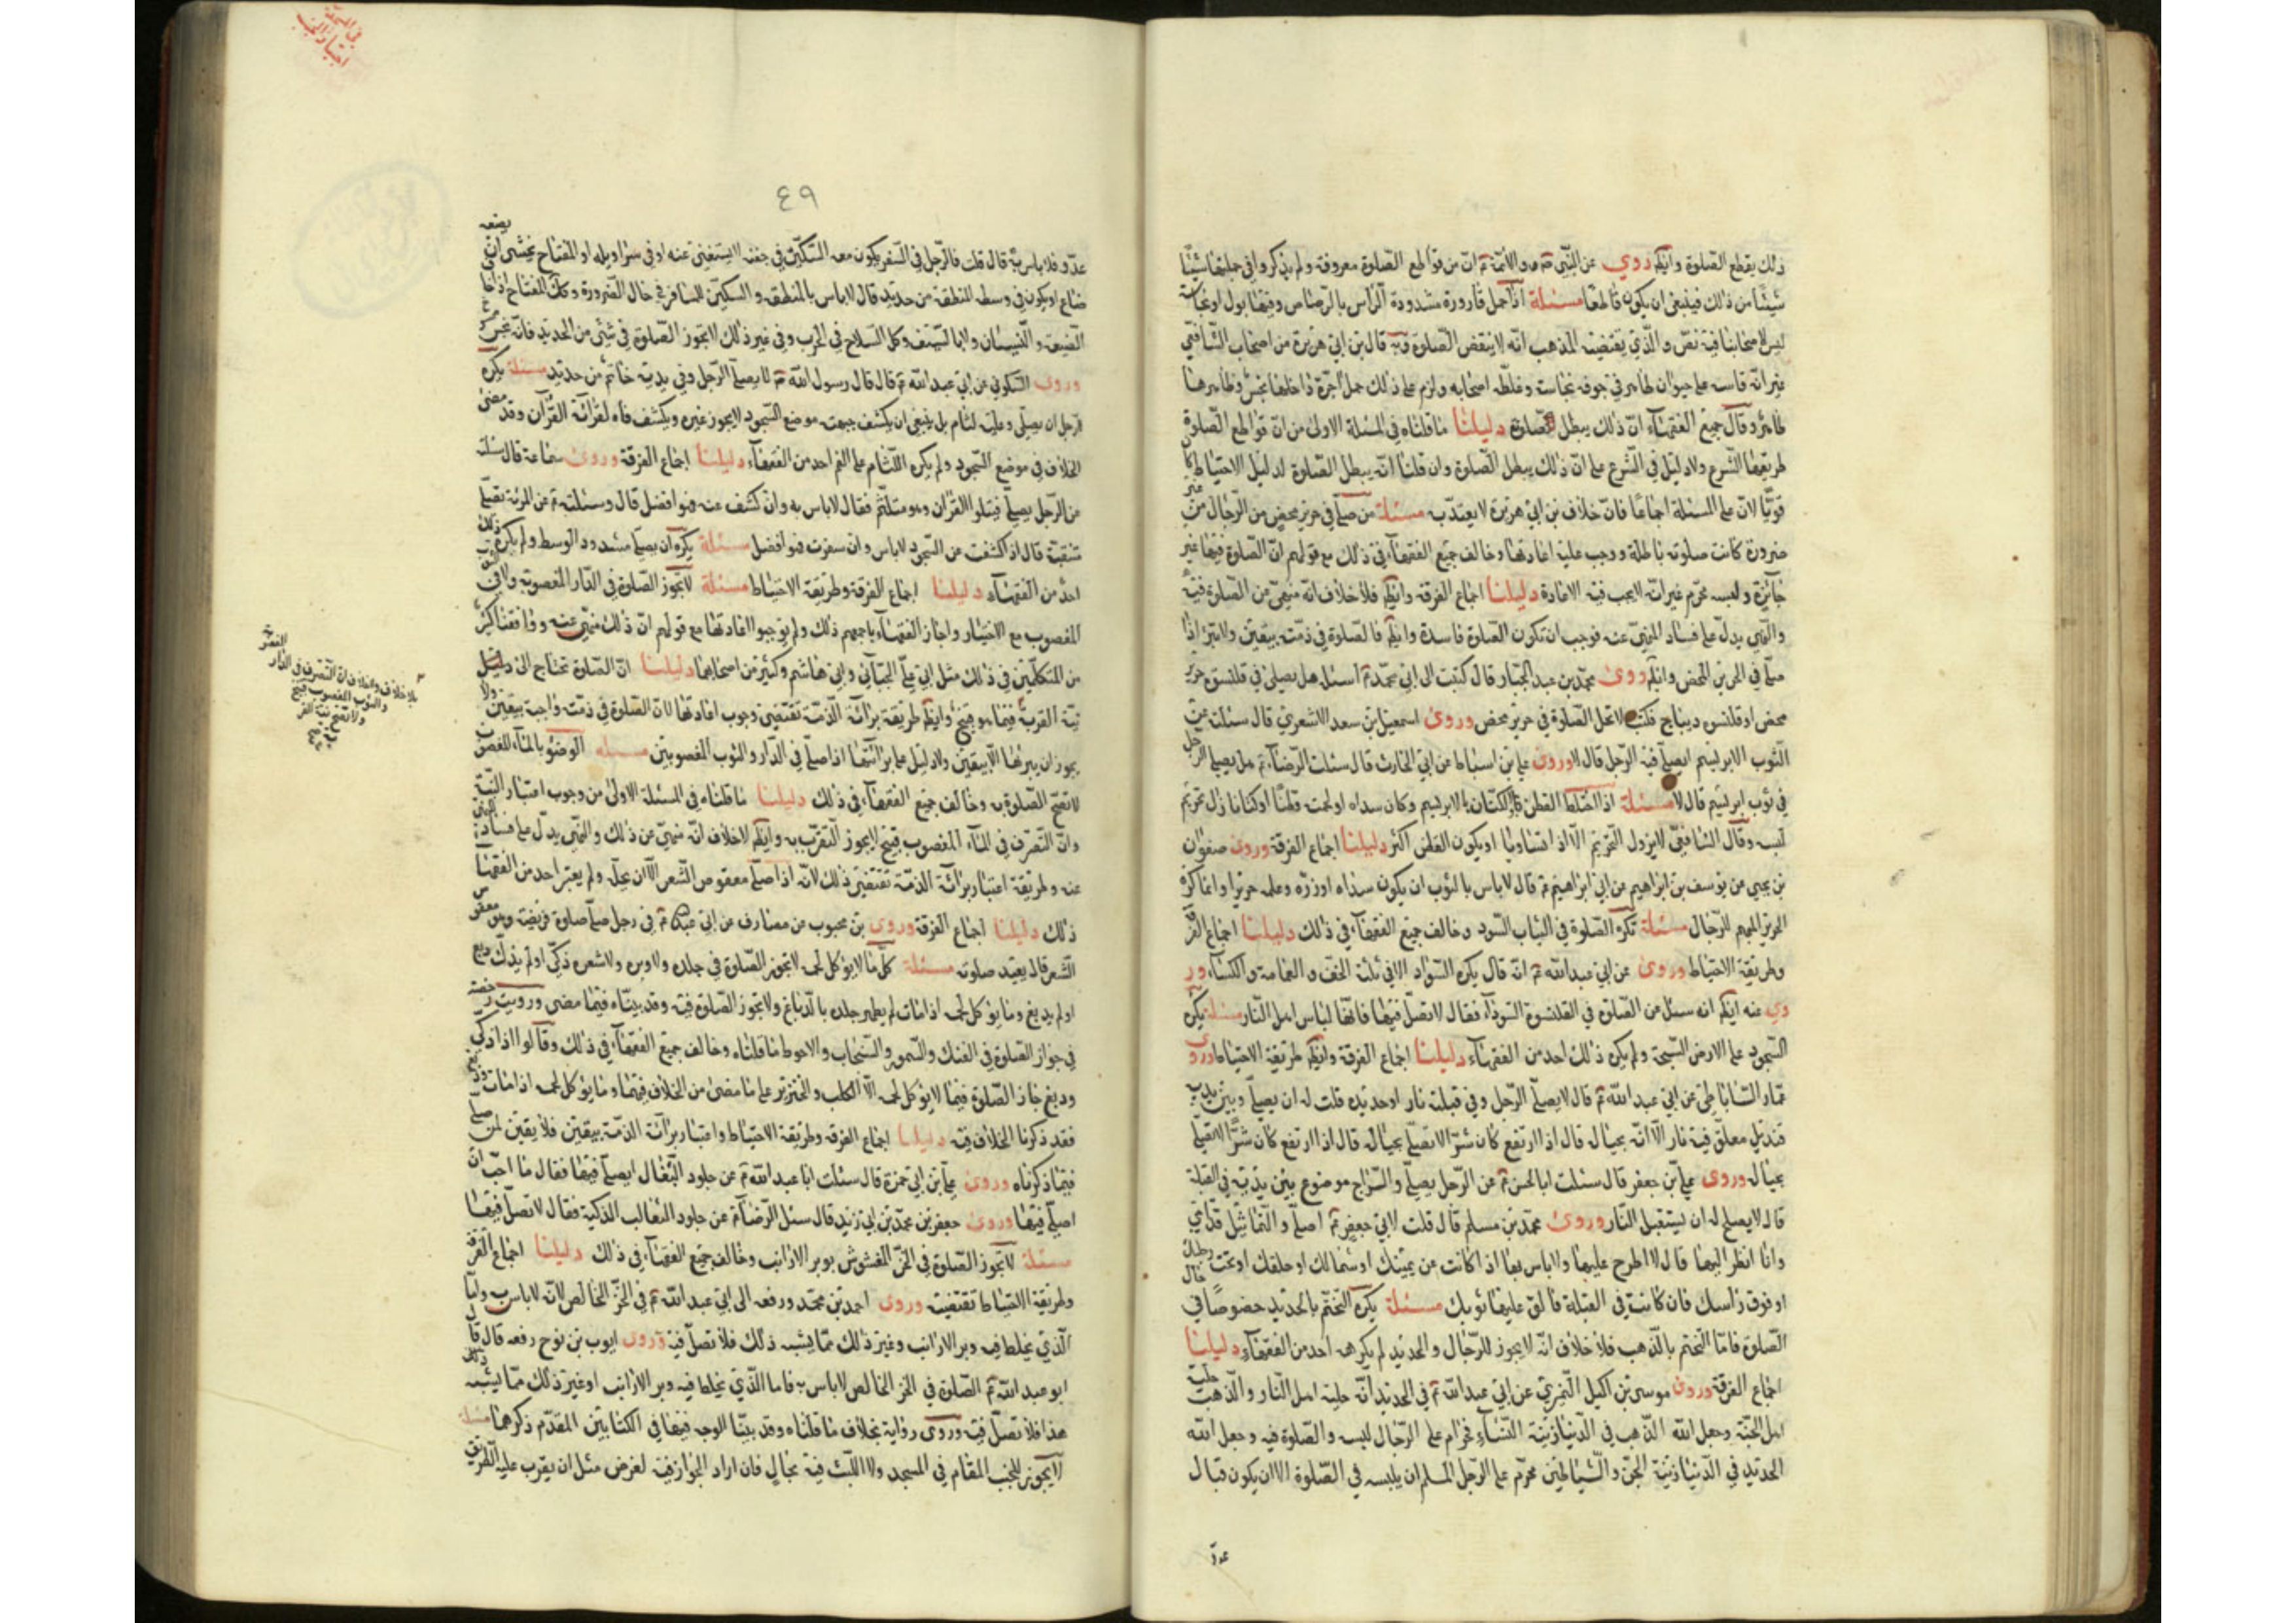 ذلك يقطع الصلوة وايضا روي عن النبي والائمة ان من قواطع الصلوة معروفة ولم يذكروا في جملتها شيئا
شيئا من ذلك فينبغي ان يكون قاطعا مسئلة اذا حمل قارورة مشدودة الراس بالرصاص وفيها بول او نجاسة
ليس لاصحابنا فيه نص والذي يقتضيه المذهب انه لا ينقض الصلوة وبه قال بن ابي هريرة من اصحاب الشافعي
غير انه قاسه على حيوان طاهر في جوفه نجاسة وغلطه اصحابه ولزم على ذلك حمل اجرة داخلها نجس وظاهرها
طاهر وقال جميع الفقهاء ان ذلك يبطل الصلوة دليلنا ما قلناه في المسئلة الاولى من ان قواطع الصلوة
طريقها الشرع ولا دليل في الشرع على ان ذلك يبطل الصلوة وان قلنا انه يبطل الصلوة لدليل الاحتياط كان
قويا لان على المسئلة اجماعا فان خلاف بن ابي هريرة لا يعتد به مسئلة من صلى في حرير محض من الرجال من غير
ضرورة كانت صلوته باطلة ووجب عليه اعادتها وخالف جميع الفقهاء في ذلك مع قولهم ان الصلوة فيها غير
جائزة ولبسه محرم غير انه لا يجب فيه الاعادة دليلنا اجماع الفرقة وايضا فلا خلاف انه منهي عن الصلوة فيه
والنهي يدل على فساد المنهي عنه فوجب ان تكون الصلوة فاسدة وايضا فالصلوة في ذمته بيقين ولا تبرا اذا
صلى في الحرير المحض وايضا روى محمد بن عبد الجبار قال كتبت الى ابي محمد اسئله هل يصلى في قلنسوة حرير
محض او قلنسوة ديباج فكتب لا تحل الصلوة في حرير محض وروى اسمعيل بن سعد الاشعري قال سئلته عن
الثوب الابريسم ايصلي فيه الرجل قال لا وروى علي بن اسباط عن ابي الحارث قال سئلت الرضا هل يصلي الرجل
في ثوب ابريسم قال لا مسئلة اذا اختلط القطن او الكتان بالابريسم وكان سداه او لحمته قطنا او كتانا زال تحريم
لبسه وقال الشافعي لا يزول التحريم الا اذا تساويا او يكون القطن اكثر دليلنا اجماع الفرقة وروى صفوان
بن يحيى عن يوسف بن ابراهيم عن ابي ابراهيم قال لا باس بالثوب ان يكون سداه وزره وعلمه حريرا وانما كره
الحرير المبهم للرجال مسئلة تكره الصلوة في الثياب السود وخالف جميع الفقهاء في ذلك دليلنا اجماع الفرقة
وطريقة الاحتياط وروى عن ابي عبد الله انه قال يكره السواد الا في ثلثة الخف والعمامة والكساء ور
وي عنه ايضا انه سئل عن الصلوة في القلنسوة السوداء فقال لا تصل فيها فانها لباس اهل النار مسئلة يكره
السجود على الارض السبخة ولم يكره ذلك احد من الفقهاء دليلنا اجماع الفرقة وايضا طريقة الاحتياط وروى
عمار الساباطي عن ابي عبد الله قال لا يصلي الرجل وفي قبلته نار او حديد قلت له ان يصلي وبين يديه
قنديل معلق فيه نار الا انه بحياله قال اذا ارتفع كان شرا لا تصلي بحياله قال اذا ارتفع كان شرا لا تصلي
بحياله وروى علي بن جعفر قال سئلت ابا الحسن عن الرجل يصلي والسراج موضوع بين يديه في القبلة
قال لا يصلح له ان يستقبل النار وروى محمد بن مسلم قال قلت لابي جعفر اصلي والتماثيل قدامي
وانا انظر اليها قال لا اطرح عليها ولا باس بها اذا كانت عن يمينك او شمالك او خلفك او تحت رجلك
او فوق راسك فان كانت في القبلة فالق عليها ثوبك مسئلة يكره التختم بالحديد خصوصا في حال
الصلوة فاما التختم بالذهب فلا خلاف انه لا يجوز للرجال والحديد لم يكرهه احد من الفقهاء دليلنا
اجماع الفرقة وروى موسى بن اكيل النميري عن ابي عبد الله في الحديد انه حلية اهل النار والذهب حلية
اهل الجنة وجعل الله الذهب في الدنيا زينة النساء فحرام على الرجال لبسه والصلوة فيه وجعل الله
الحديد في الدنيا زينة الجن والشياطين محرم على الرجل المسلم ان يلبسه في الصلوة الا ان يكون قبال
عدو
٤٩
عدو فلا باس به قال قلت فالرجل في السفر يكون معه السكين في خفه لا يستغني عنه او في سراويله او المفتاح يخشى ان يضعه
ضاع او يكون في وسطه المنطقة من حديد قال لا باس بالمنطقة والسكين للمسافر في حال الضرورة وكذلك المفتاح اذا خاف
الضيعة والنسيان ولا بالسيف وكل السلاح في الحرب وفي غير ذلك لا تجوز الصلوة في شئ من الحديد فانه نجس
وروى السكوني عن ابي عبد الله قال قال رسول الله لا يصلي الرجل وفي يديه خاتم من حديد مسئلة يكره
للرجل ان يصلي وعليه لثام بل ينبغي ان يكشف جبهته موضع السجود لا يجوز غيره ويكشف فاه لقرائة القرآن وقد مضى
الخلاف في موضع السجود ولم يكره اللثام على الفم احد من الفقهاء دليلنا اجماع الفرقة وروى سماعة قال سئلته
عن الرجل يصلي فيتلوا القران وهو متلثم فقال لا باس به وان كشف عنه فهو افضل قال وسئلته عن المرئة تصلي
متنقبة قال اذا كشفت عن السجود لا باس وان سفرت فهو افضل مسئلة يكره ان يصلي مشدود الوسط ولم يكره ذلك
احد من الفقهاء دليلنا اجماع الفرقة وطريقة الاحتياط مسئلة لا تجوز الصلوة في الدار المغصوبة ولا في الثوب
المغصوب مع الاختيار واجاز الفقهاء باجمعهم ذلك ولم يوجبوا اعادتها مع قولهم ان ذلك منهي عنه ووافقنا كثير
من المتكلمين في ذلك مثل ابي علي الجبائي وابي هاشم وكثير من اصحابهما دليلنا ان الصلوة تحتاج الى
نية القربة فيما هو قبيح وايضا طريقة برائة الذمة تقتضي وجوب اعادتها لان الصلوة في ذمته واجبة بيقين ولا
يجوز ان يبرئها الا بيقين ولا دليل على برائتها اذا صلى في الدار والثوب المغصوبين مسئله الوضوء بالماء المغصوب
لا تصح الصلوة به وخالف جميع الفقهاء في ذلك دليلنا ما قلناه في المسئلة الاولى من وجوب اعتبار النية
وان التصرف في الماء المغصوب قبيح لا يجوز التقرب به وايضا لا خلاف انه منهي عن ذلك والنهي يدل على فساد المنهي
عنه وطريقة اعتبار برائة الذمة تقتضي ذلك لانه اذا صلى معقوص الشعر الا ان يحله ولم يعتبر احد من الفقهاء
ذلك دليلنا اجماع الفرقة وروى بن محبوب عن مصادف عن ابي عبد الله في رجل صلى صلوة فريضة وهو معقوص
الشعر قال يعيد صلوته مسئلة كل ما لا يؤكل لحمه لا تجوز الصلوة في جلده ولا وبره ولا شعره ذكي او لم يذك دبغ
او لم يدبغ وما يؤكل لحمه اذا مات لم يطهر جلده بالدباغ ولا تجوز الصلوة فيه وقد بيناه فيما مضى ورويت رخصة
في جواز الصلوة في الفنك والسمور والسنجاب والاحوط ما قلناه وخالف جميع الفقهاء في ذلك وقالوا اذا ذكي
ودبغ جاز الصلوة فيما لا يؤكل لحمه الا الكلب والخنزير على ما مضى من الخلاف فيهما وما يؤكل لحمه اذا مات ودبغ
فقد ذكرنا الخلاف فيه دليلنا اجماع الفرقة وطريقة الاحتياط واعتبار برائة الذمة بيقين فلا يقين لمن صلى
فيما ذكرناه وروى علي بن ابي حمزة قال سئلت ابا عبد الله عن جلود البغال ايصلي فيها فقال ما احب ان
اصلي فيها وروى جعفر بن محمد بن ابي زيد قال سئل الرضا عن جلود الثعالب الذكية فقال لا تصل فيها
مسئلة لا تجوز الصلوة في الخز المغشوش بوبر الارانب وخالف جميع الفقهاء في ذلك دليلنا اجماع الفرقة
وطريقة الاحتياط تقتضيه وروى احمد بن محمد ورفعه الى ابي عبد الله في الخز الخالص لانه لا باس به واما
الذي يخلط فيه وبر الارانب وغير ذلك مما يشبه ذلك فلا تصل فيه وروى ايوب بن نوح رفعه قال قال
ابو عبد الله الصلوة في الخز الخالص لا باس به فاما الذي يخلط فيه وبر الارانب او غير ذلك مما يشبه
هذا فلا تصل فيه وروى رواية بخلاف ما قلناه وقد بينا الوجه فيها في الكتابين المقدم ذكرهما مسئلة
لا يجوز للجنب المقام في المسجد ولا اللبث فيه بحال فان اراد الجواز فيه لغرض مثل ان يقرب عليه الطريق
بلا خلاف ولا خلاف ان التصرف في الدار
والثوب المغصوب قبيح
ولا تصح نية القربة